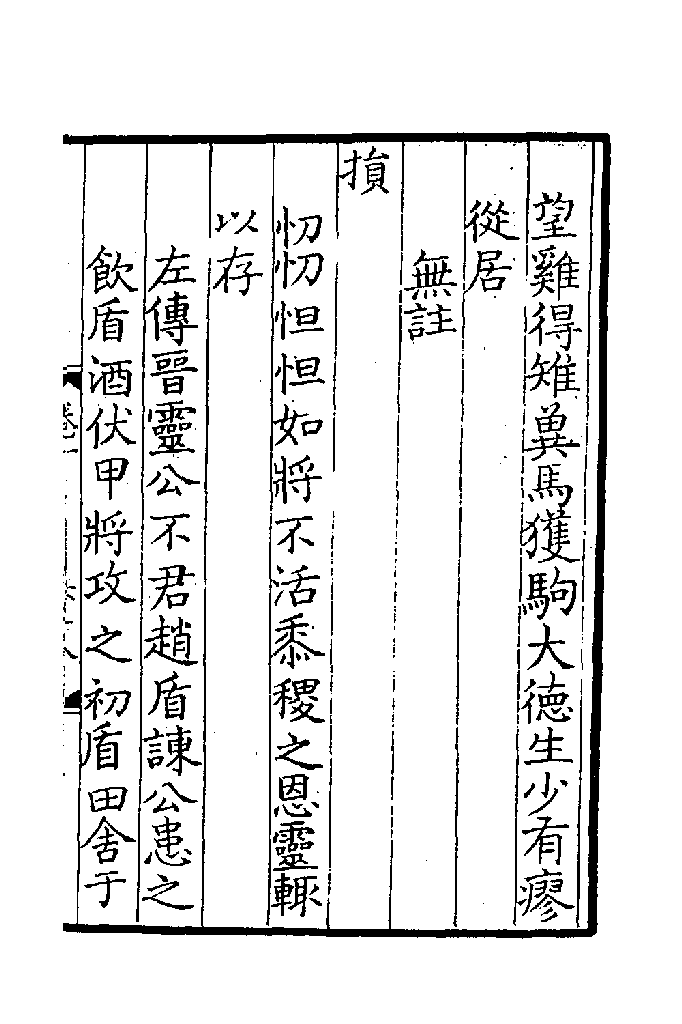 望雞得雉冀馬獲駒大德生少有瘳
從居
無註
損
忉忉怛怛如將不活黍稷之恩靈輒
以存
左傳晉靈公不君趙盾諫公患之
飲盾酒伏甲將攻之初盾田舍于